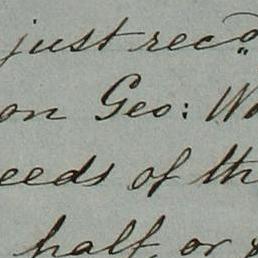 just recd
on Geo: W
eeds of th
half, or